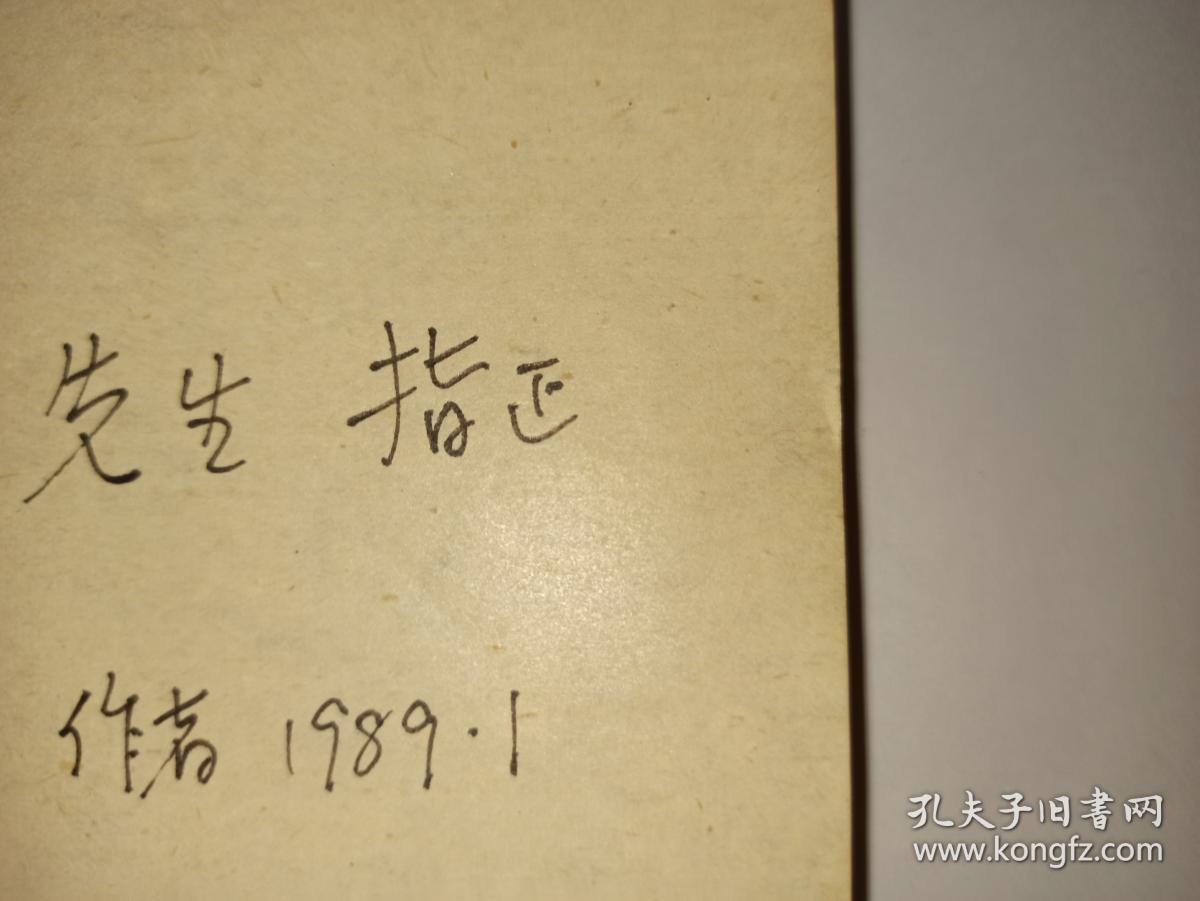 先生 指正
作者 1989.1
孔夫子旧書网
www.kongfz.com